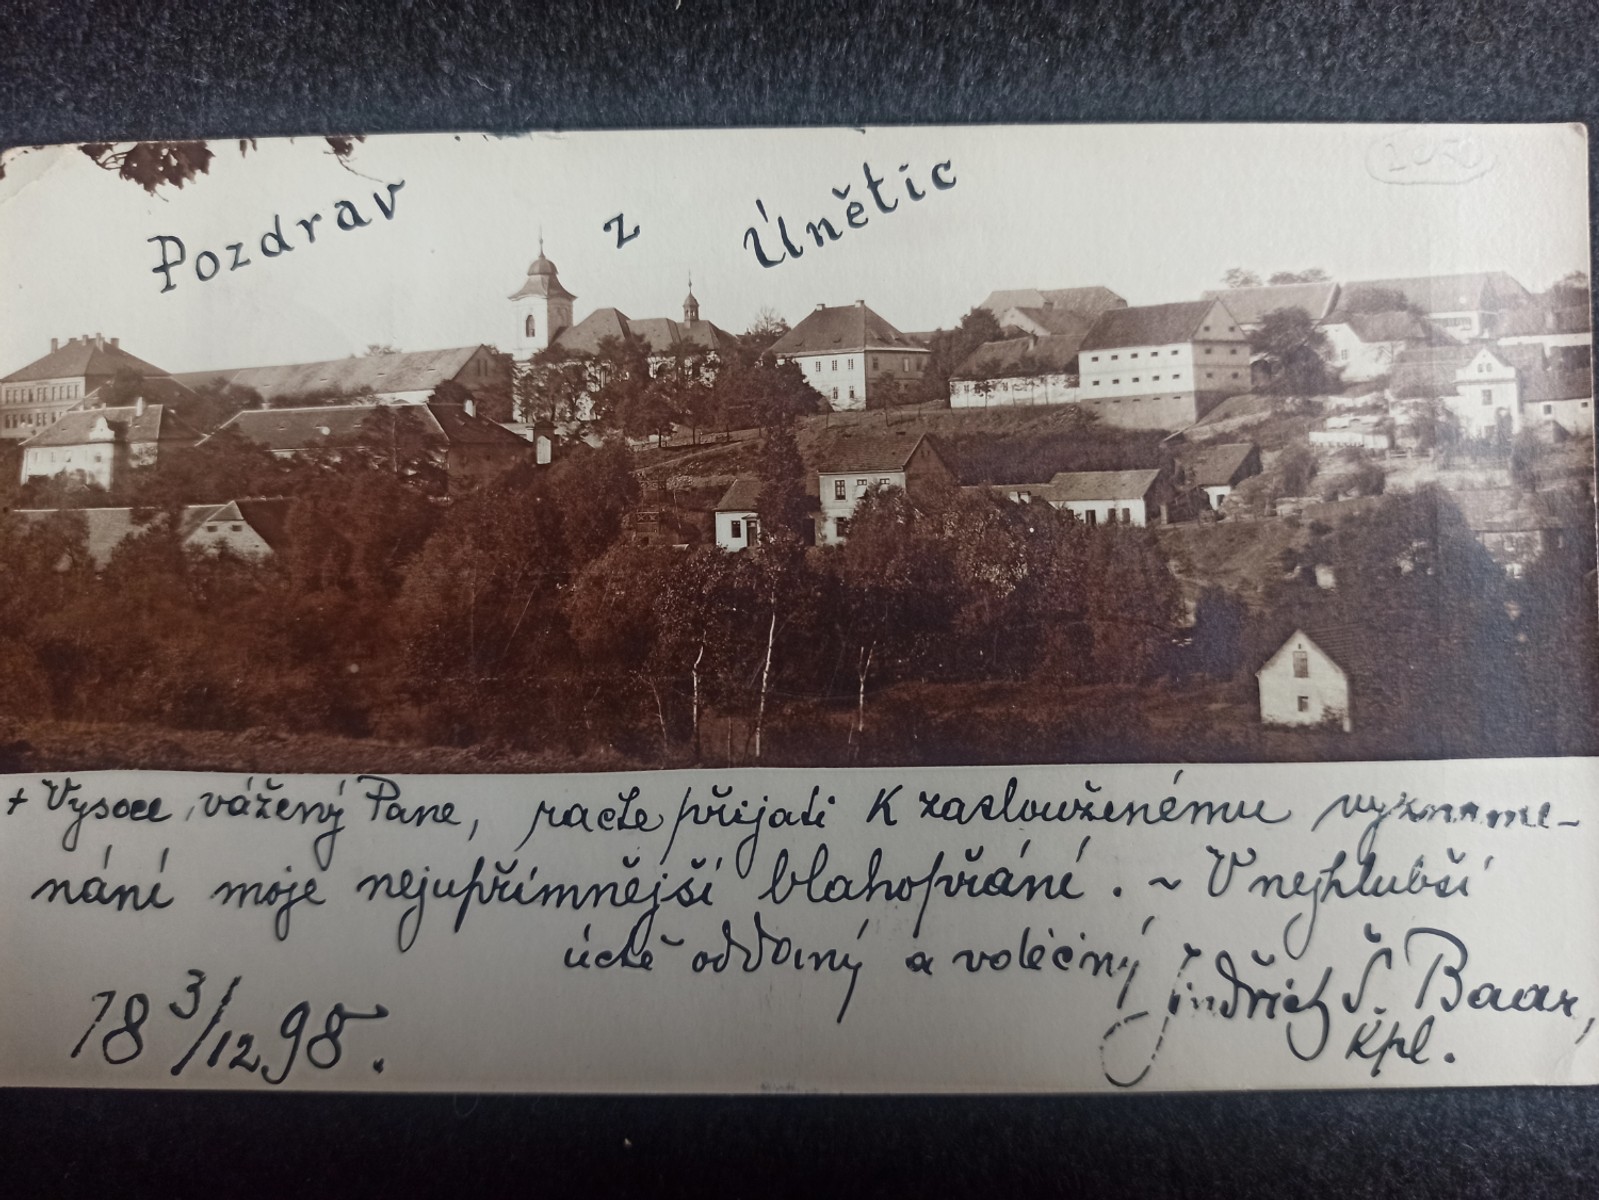 Pozdrav z Únětic
+ Vysoce vážený Pane, račte přijati k zaslouženému vyzname-
nání moje nejupřímnější blahopřání. ~ V nejhlubší
úctě oddaný a vděčný Jindřich Š. Baar,
kpl.
18 3/12 98.